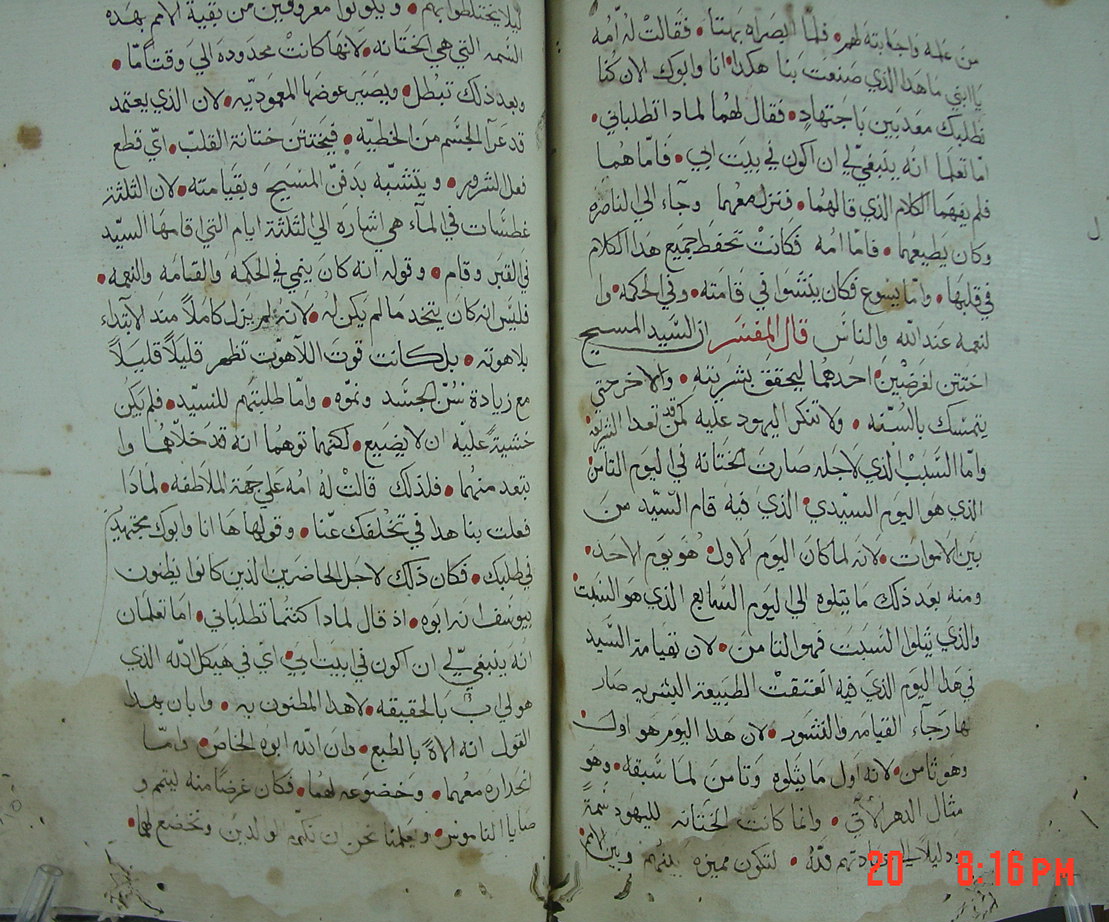 من علمه واجابته لهم • فلما ابصراه بهتا • فقالت له امه
يا ابني ما هذا الذي صنعت بنا هكذا • انا وابوك الان كنا
نطلبك معدبين باجتهاد • فقال لهما لماد اتطلباني •
اما تعلما انه ينبغي لي ان اكون في بيت ابي • فاما هما
فلم يفهما الكلام الذي قالهما • فنزل معهما وجاء الي الناصره
وكان يطيعهما • فاما امه فكانت تحفظ جميع هذا الكلام
في قلبها • واما يسوع فكان ينشوا في قامته • وفي الحكمه • وا
لنعمه عند الله والناس قال المفسر ان السيد المسيح
اختتن لغرضين • احدهما ليحقق بشريته • والاخر حتي
يتمسك بالسنه • ولا تنكر اليهود عليه كمن قد تعدا الشريعه
واما السبب الذي لاجله صارت الختانه في اليوم الثامن
الذي هو اليوم السيدي • الذي فيه قام السيد من
بين الاموات • لانه لما كان اليوم الاول • هو يوم الاحد •
ومنه بعد ذلك ما يتلوه الي اليوم السابع الذي هو السبت
والذي يتلوا السبت فهو الثامن • لان بقيامة السيد
في هذا اليوم الذي فيه اعتقت الطبيعة البشريه صار
لها رجآء القيامه والنشور • لان هذا اليوم هو اول
وهو ثامن • لانه اول ما يتلوه وثامن لما سبقه • وهو
مثال الدهر الاتي • وانما كانت الختانه لليهود سمة
ودليلا لتكون مميزه بينهم وبين الامم
ليلا يختلطوا بهم • ويكونوا معروفين من بقية الامم بهده
السمه التي هي الختانه • لانها كانت محدوده الي وقت ما •
وبعد ذلك تبطل • ويصير عوضها المعموديه • لان الذي يعتمد
قد عرا الجسم من الخطيه • فيختتن ختانة القلب • اي قطع
فعل الشرور • ويتشبه بدفن المسيح وبقيامته • لان الثلثة
غطسات في المآء هي اشاره الي الثلثة ايام التي اقامها السيد
في القبر وقام • وقوله انه كان ينمي في الحكمه والقامه والنعمه •
فليس انه كان يتخد ما لم يكن له • لانه لم يزل كاملاً مند الابتداء
بلاهوته • بل كانت قوت اللاهوت تظهر قليلاً قليلاً
مع زيادة سن الجسد ونموه • واما طلبتهم للسيد • فلم يكن
خشية عليه ان لا يضيع • لكنهما توهما انه قد خلاهما وا
بتعد منهما • فلذلك قالت له امه علي جهة الملاطفه • لمادا
فعلت بنا هدا في تخلفك عنا • وقولها ها انا وابوك مجتهدين
في طلبك • فكان ذلك لاجل الحاضرين الذين كانوا يظنون
بيوسف انه ابوه • اذ قال لمادا كنتما تطلباني • اما تعلمان
انه ينبغي لي ان اكون في ابيت ابي • اي في هيكل الله الذي
هو لي اب بالحقيقه • لا هدا المظنون به • وابان بهدا
القول انه الاة بالطبع • وان الله ابوه الخاص • واما
انحداره معهما • وخضوعه لهما • فكان غرضا منه ليتمم و
صايا الناموس • ويعلمنا نحن ان نكرم الوالدين ونخضع لهما •
20 8:16 PM